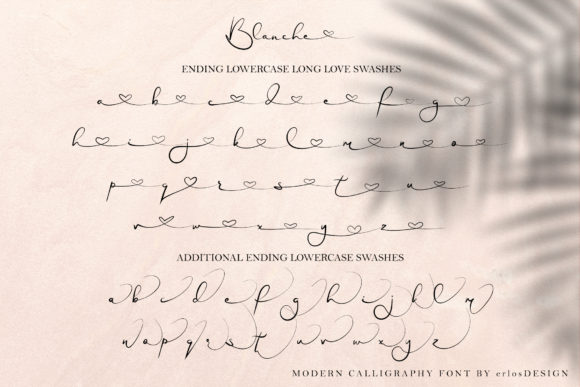 Blanche
ENDING LOWERCASE LONG LOVE SWASHES
a b c d e f g
h i j k l m n o
p q r s t u
v w x y z
ADDITIONAL ENDING LOWERCASE SWASHES
a b c d e f g h i j k l m
n o p q r s t u v w x y z
MODERN CALLIGRAPHY FONT BY erlosDESIGN